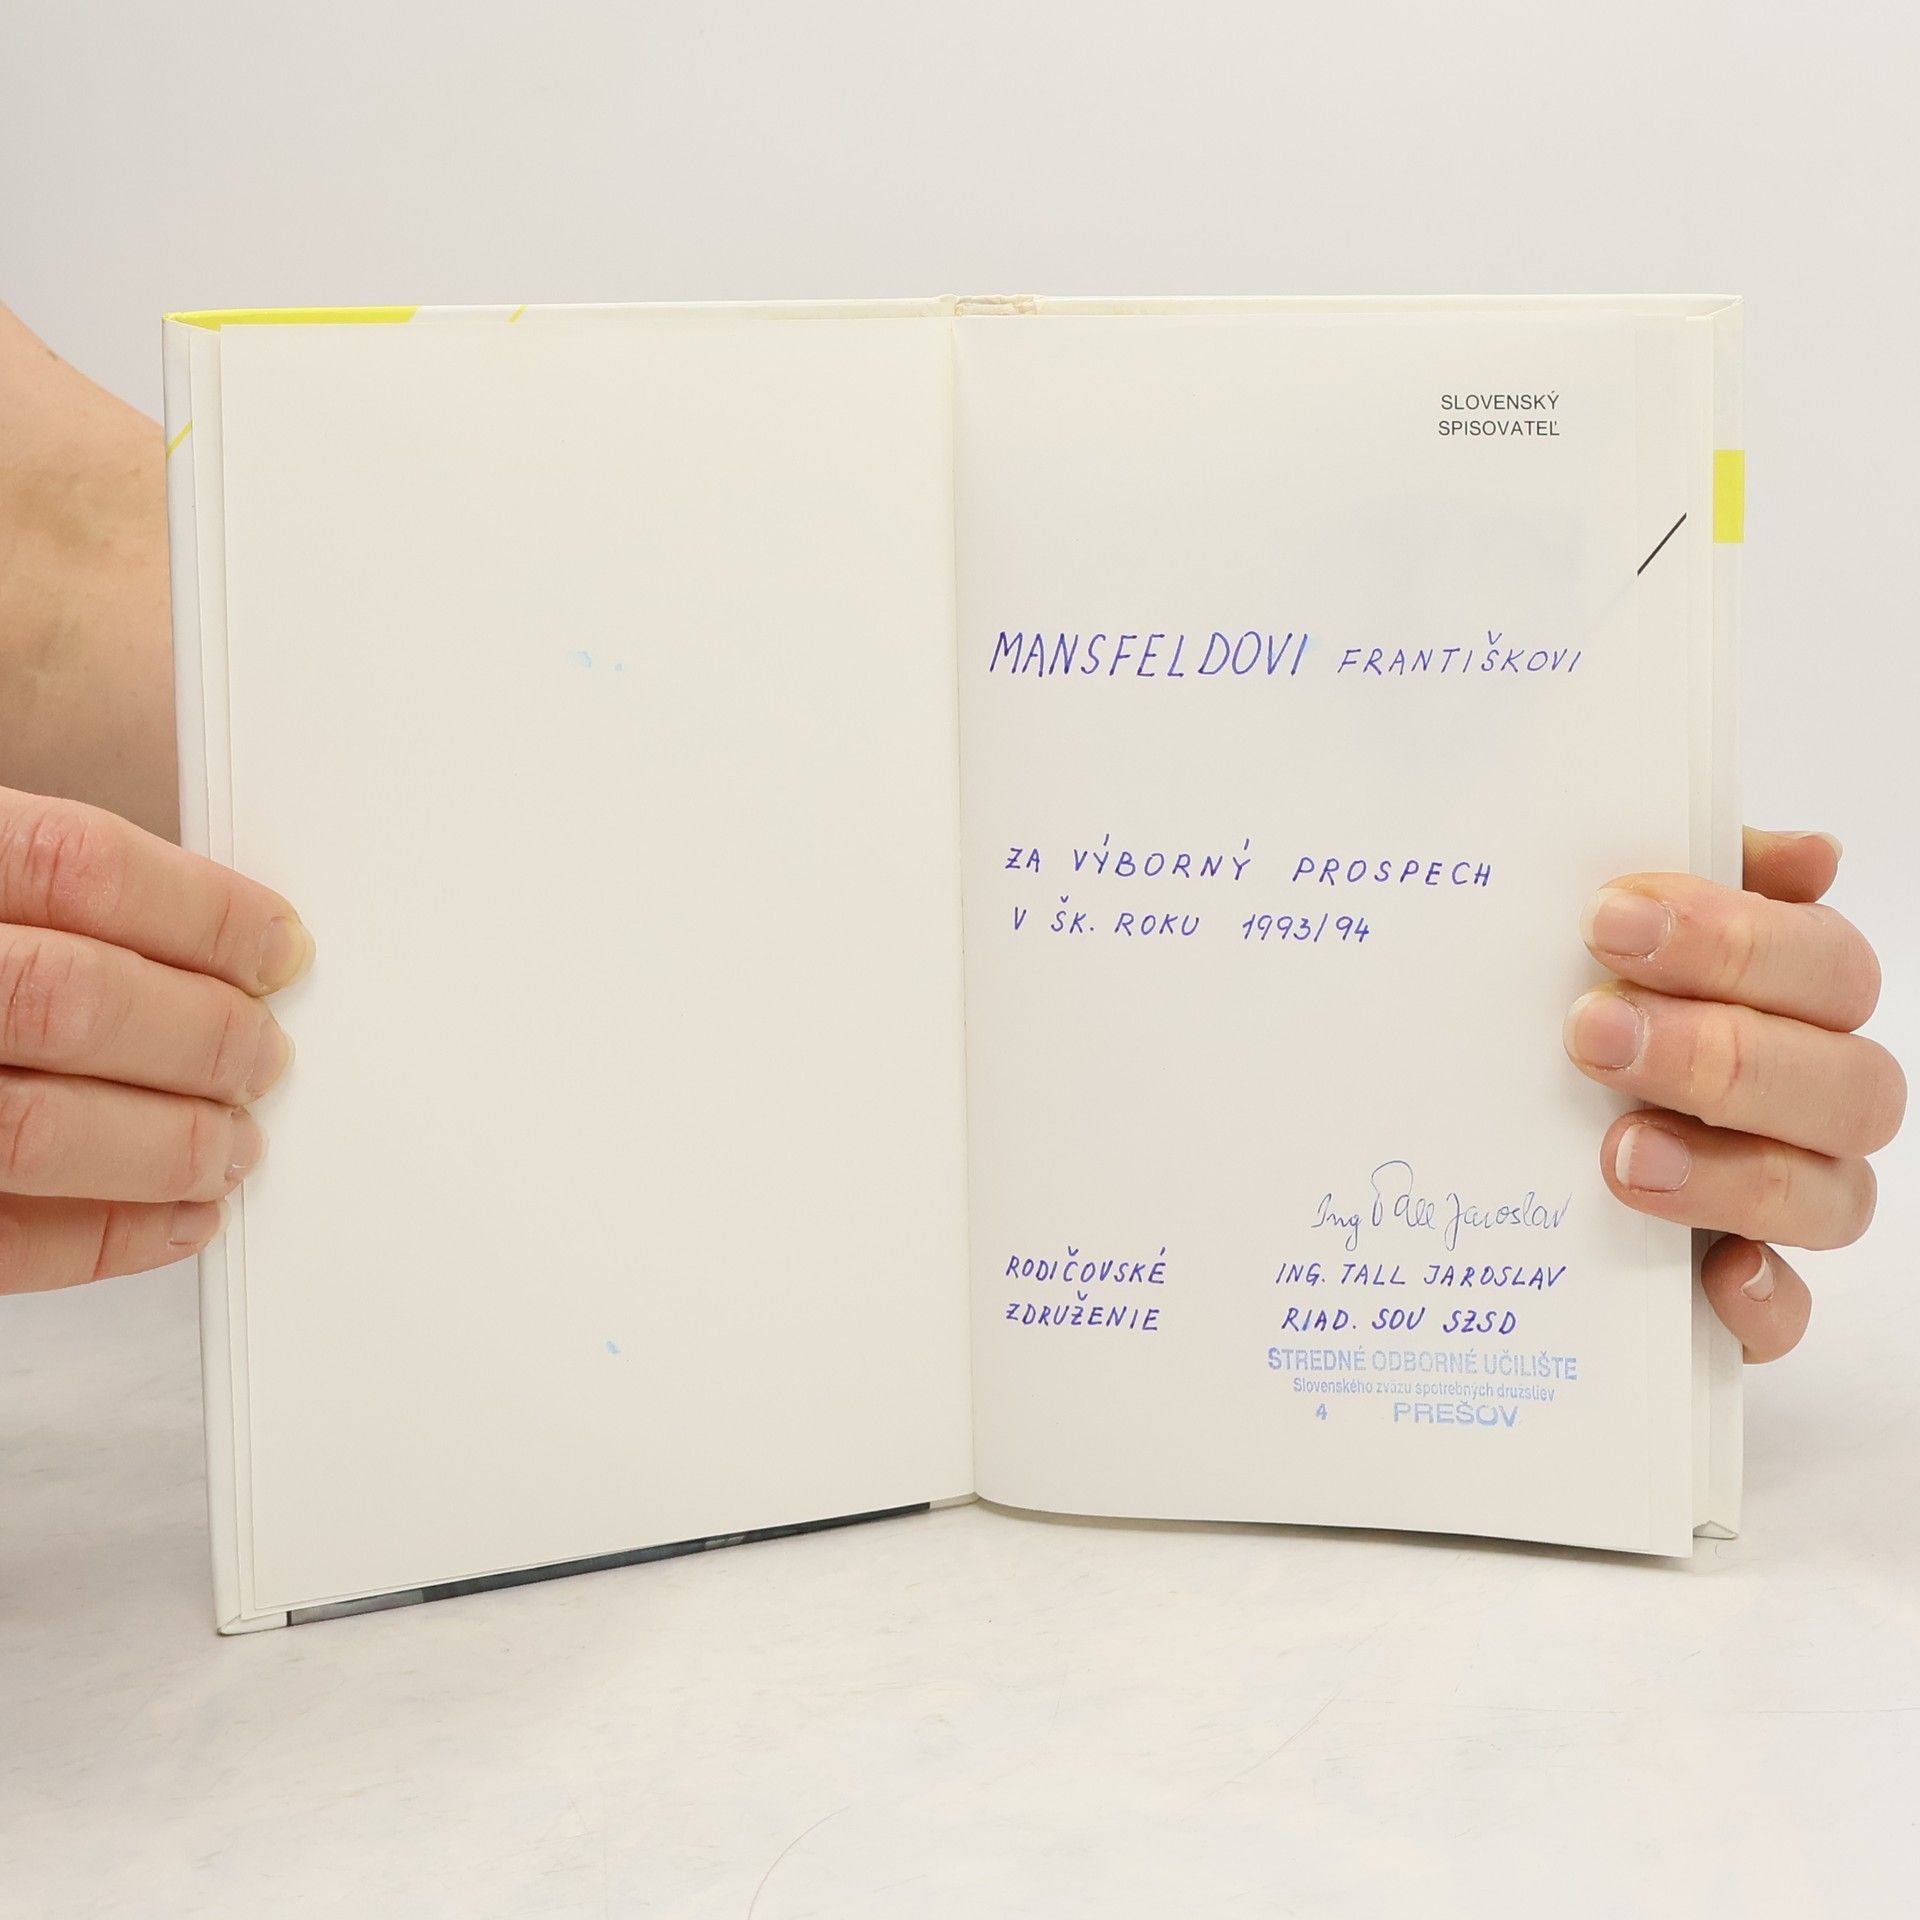 SLOVENSKÝ
SPISOVATEĽ
MANSFELDOVI FRANTIŠKOVI
ZA VÝBORNÝ PROSPECH
V ŠK. ROKU 1993/94
Ing Tall Jaroslav
RODIČOVSKÉ
ZDRUŽENIE
ING. TALL JAROSLAV
RIAD. SOU SZSD
STREDNÉ ODBORNÉ UČILIŠTE
Slovenského zväzu spotrebných družstiev
4 PREŠOV